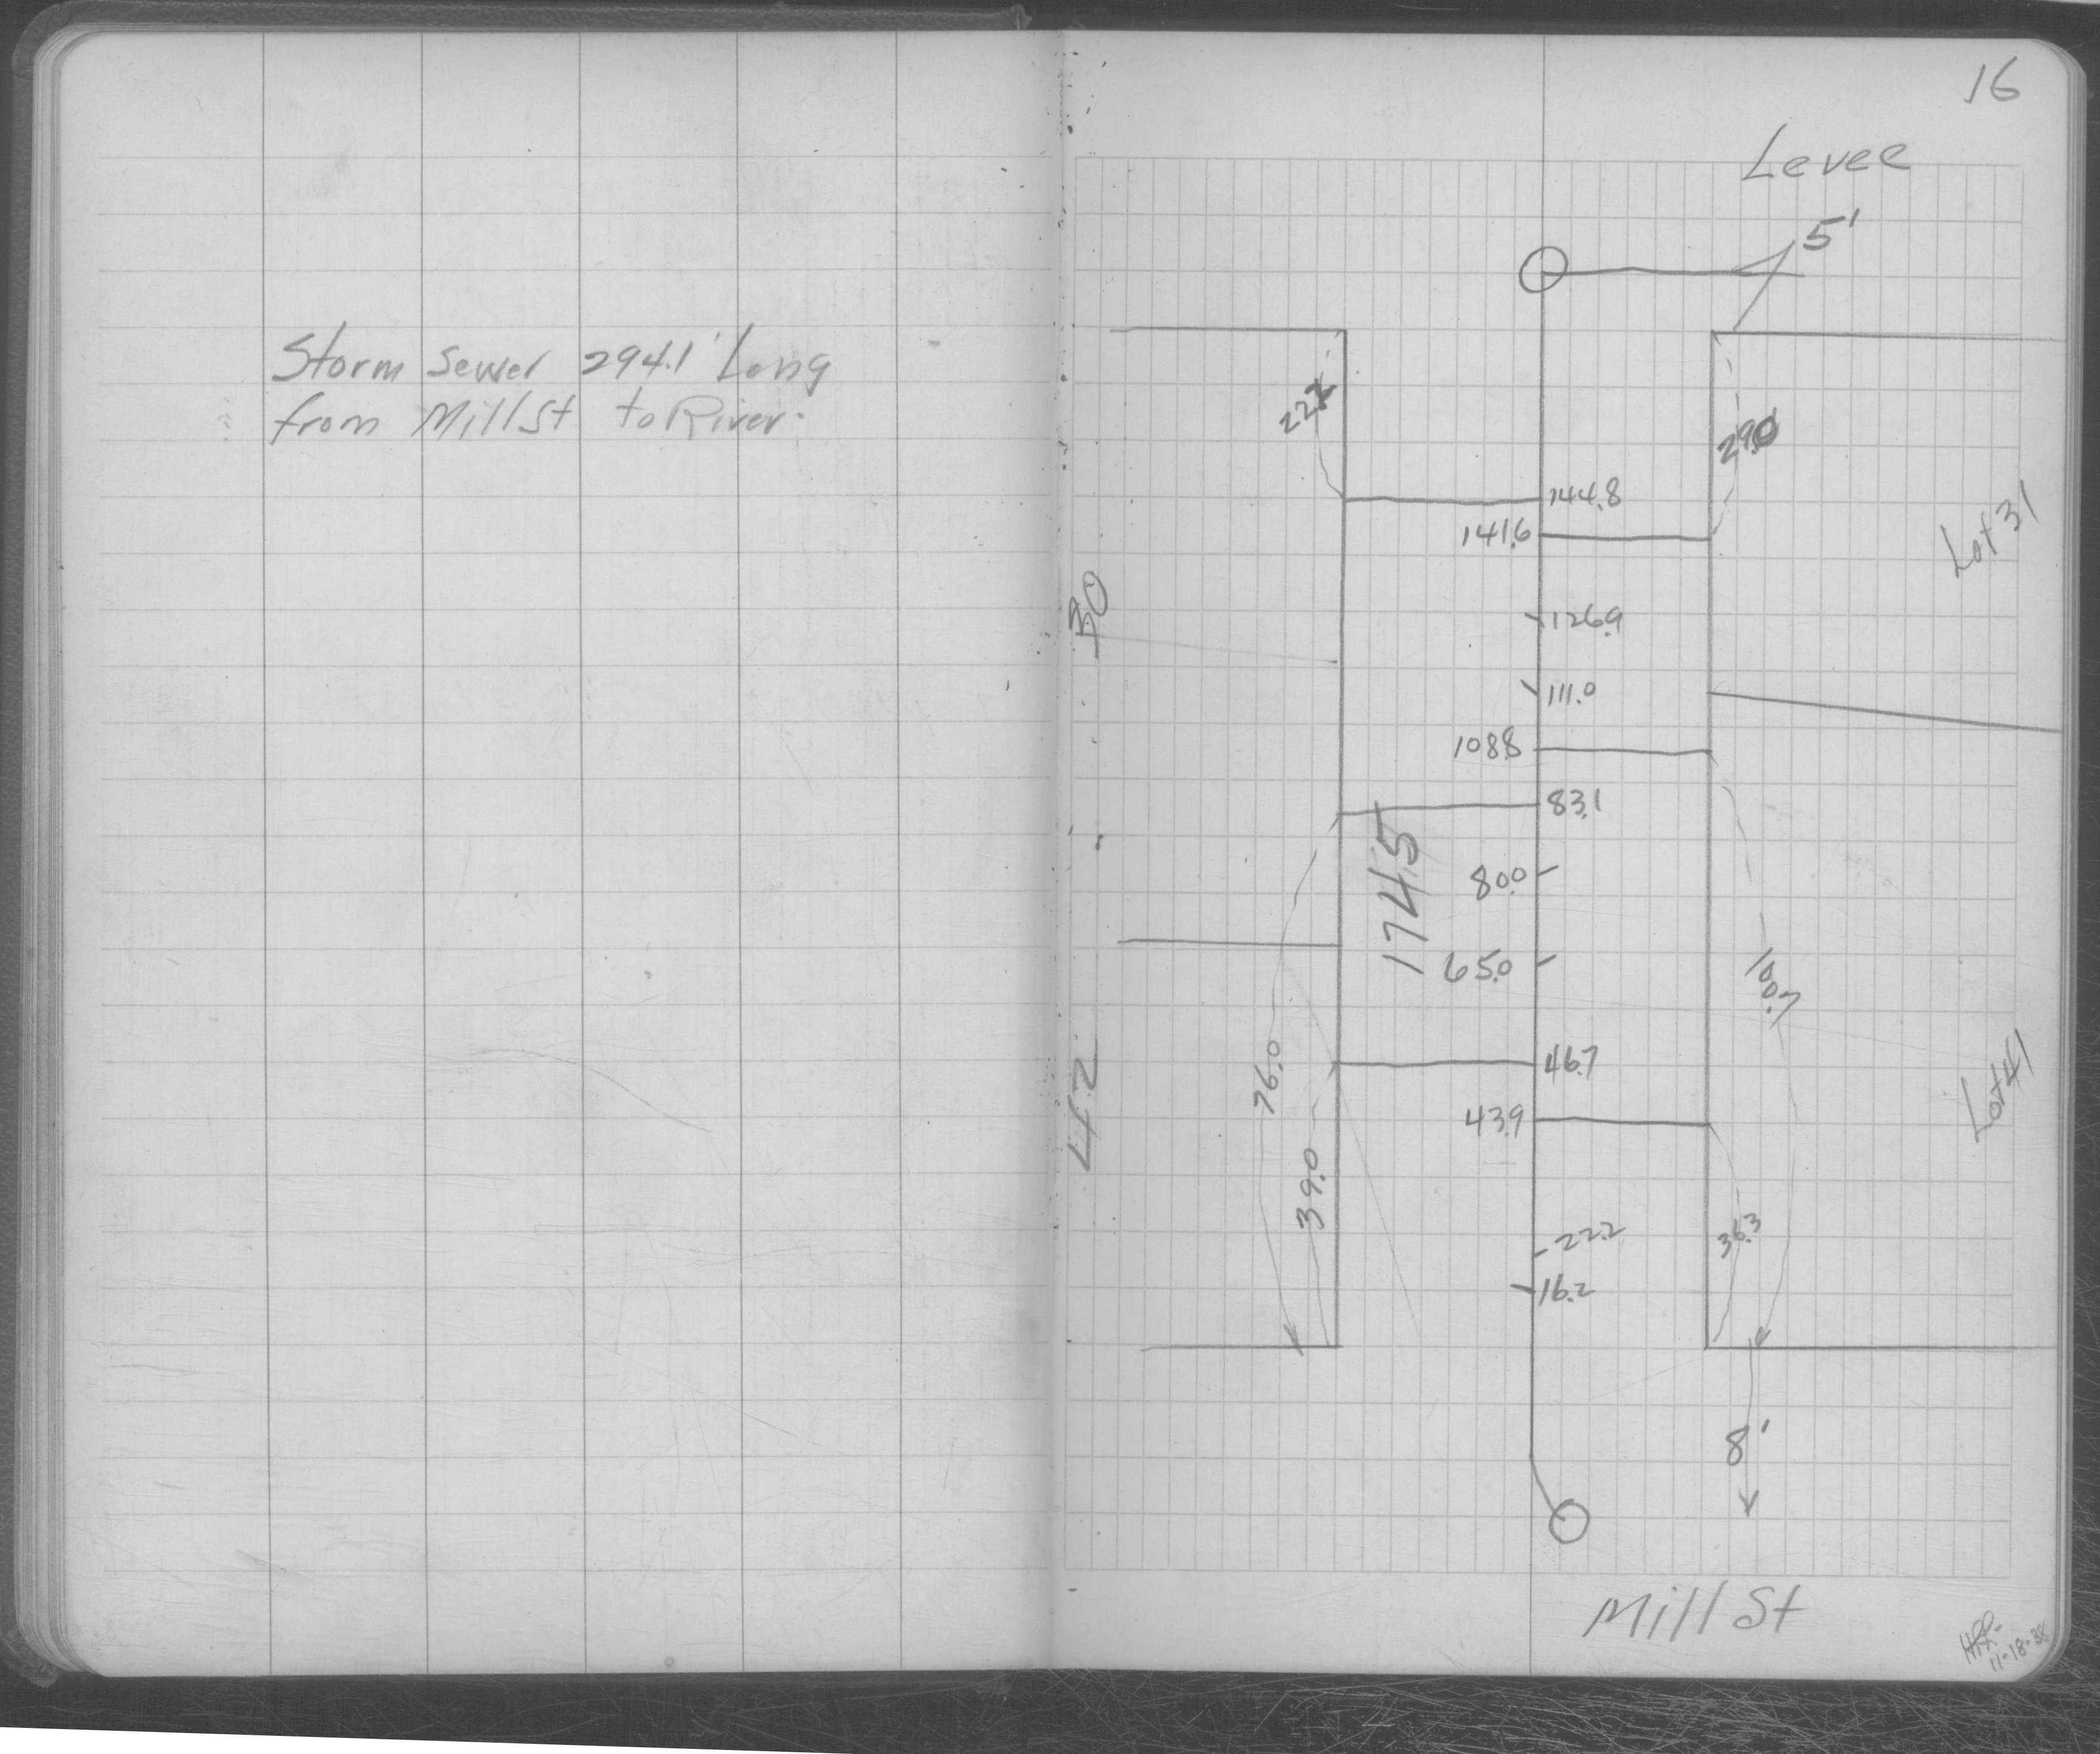 Storm Sewer 294.1' Long
from Mill St to River.
16
Levee
5'
29.0
144.8
141.6
Lot 31
30
126.9
111.0
108.8
83.1
174.5
80.0
65.0
100.7
46.7
76.0
42
43.9
Lot 41
39.0
36.3
22.2
16.2
8'
Mill St
11-18-38